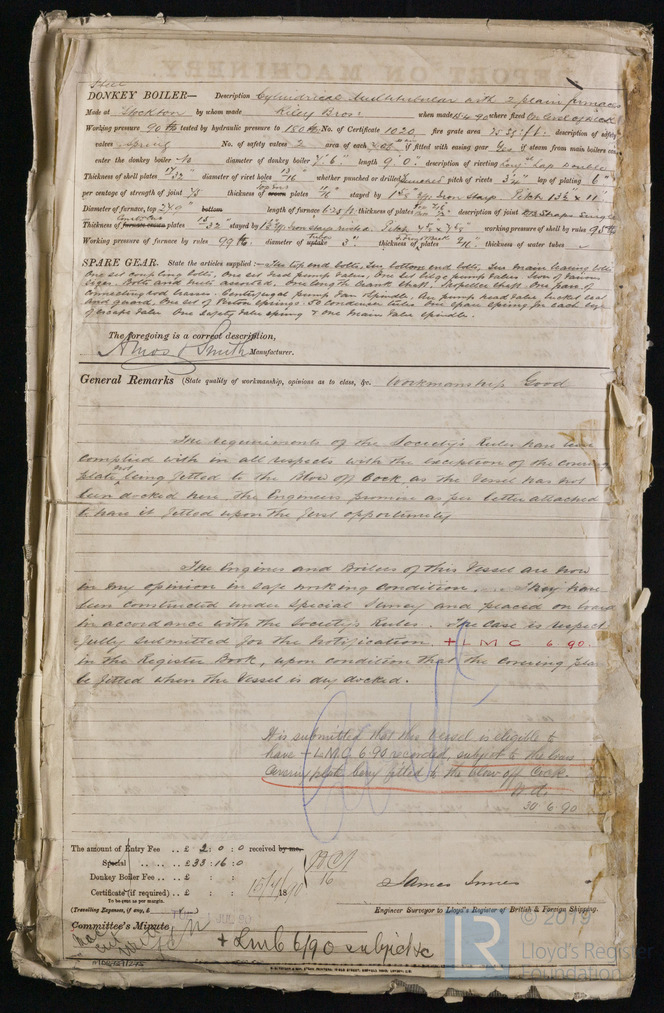 Steel
DONKEY BOILER— Description Cylindrical Multitubular with 2 plain furnaces
Made at Stockton by whom made Riley Bros. when made 15.4.90 where fixed On end of deck
Working pressure 90 lbs tested by hydraulic pressure to 180 lbs No. of Certificate 1020 fire grate area description of safety
valves Spring No. of safety valves 2 area of each if fitted with easing gear Yes if steam from main boilers can
enter the donkey boiler No diameter of donkey boiler 7' 6" length 9' 0" description of riveting Long. Lap Double
Thickness of shell plates 17/32" diameter of rivet holes 13/16" whether punched or drilled Punched pitch of rivets 3 1/4" lap of plating 6"
per centage of strength of joint 75 thickness of crown plates 11/16" stayed by Iron Stays Pitch 13 1/2 x 11"
Diameter of furnace, top 2' 9" bottom length of furnace thickness of plates description of joint Straps Single
Thickness of furnace crown plates 15/32" stayed by Iron Stays riveted Pitch working pressure of shell by rules
Working pressure of furnace by rules 99 lbs: diameter of uptake 3" thickness of plates 9/16" thickness of water tubes ✓
SPARE GEAR. State the articles supplied:— Two top end bolts, Two bottom end bolts, Two main bearing bolts
One set coupling bolts, One set feed pump valves, One set bilge pump valves, Iron of various
sizes, Bolts and nuts assorted, One length Crank Shaft, Propeller Shaft, One pair of
connecting rod brasses, Centrifugal pump Fan Spindle, Air pump head valve, bucket seat
and guard, One set of Piston Springs, 50 condenser tubes, One spare spring for each
of escape valve, One Safety valve spring & One Main Valve Spindle.
The foregoing is a correct description,
Amos & Smith Manufacturer.
General Remarks (State quality of workmanship, opinions as to class, &c. Workmanship Good
The requirements of the Society's Rules have been
complied with in all respects with the exception of the covering
plate not being fitted to the Blow off Cock as the Vessel has not
been docked here the Engineers promise as per letter attached
to have it fitted upon the first opportunity
The Engines and Boilers of this Vessel are now
in my opinion in safe working condition. They have
been constructed under Special Survey and placed on board
in accordance with the Society's Rules. The Case is respect
fully submitted for the notification + L M C 6 90.
in the Register Book, upon condition that the Covering plate
be fitted when the Vessel is dry docked.
It is submitted that this vessel is eligible to
have + LMC 6.90 recorded, subject to the
Covering plate being fitted to the blow off Cock
30 6 90
The amount of Entry Fee .. £ 2 : 0 : 0 received by me,
Special .. .. .. £ 33 : 16 : 0
Donkey Boiler Fee .. £ : :
Certificate (if required) .. £ : : 15/7/ 1890
To be sent as per margin.
(Travelling Expenses, if any, £ )
James Innes
Engineer Surveyor to Lloyd's Register of British & Foreign Shipping.
Committee's Minute
+ LMC 6/90 subject &c
© 2019
LR
Lloyd's Register
Foundation